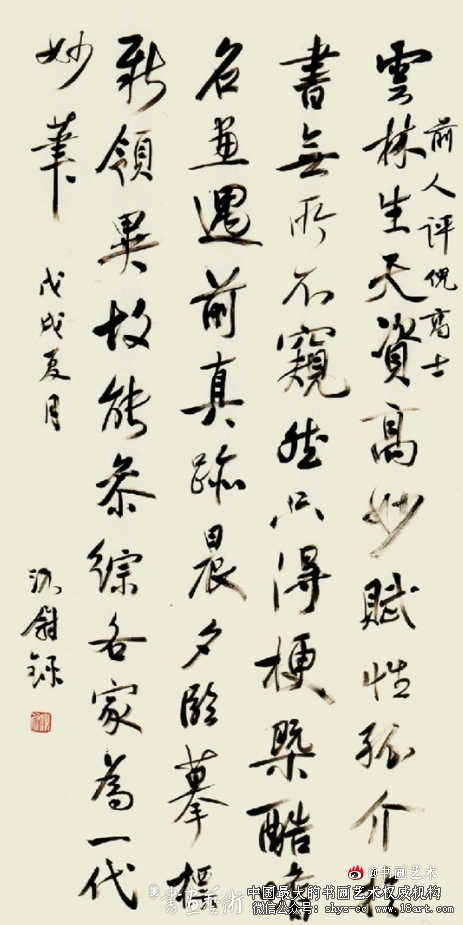 前人評倪高士
雲林生天資高妙賦性孤介於
書無所不窺然只得梗槩酷
名畫遇前真蹟晨夕臨摹標
新領異故能參綜各家為一代
妙筆
戊戌夏月
@书画艺术
書畫藝術
中国最大的书画艺术权威机构
微信公众号：shys-cc www.18art.com